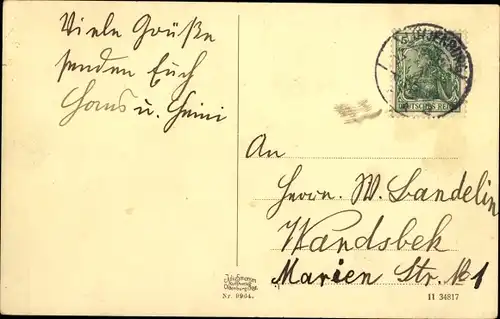 Viele Grüße
senden Euch
Hans u. Heini
DEUTSCHES REICH
An
Herrn. W. Landelin
Wandsbek
Marien Str. № 1
Nr. 8964.
11 34817